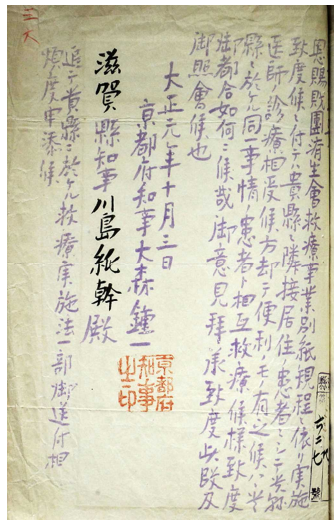 恩賜財團済生會救療事業別紙規程ニ依リ実施
致度候ニ付テハ貴縣ニ隣接居住ノ患者ニシテ其縣
医師ノ診療相受候方却テ便利ノモノ有之候ハヾ
縣ニ於ケル同一事情ノ患者ト相互救療候様致度
御都合如何ニ候哉御意見拝承致度此段及
御照會候也
大正元年十月三日
京都府知事大森鐘一
滋賀縣知事川島純幹殿
追テ貴縣ニ於ケル救療実施法一部御送付相
煩度申添候
京都府
知事
之印